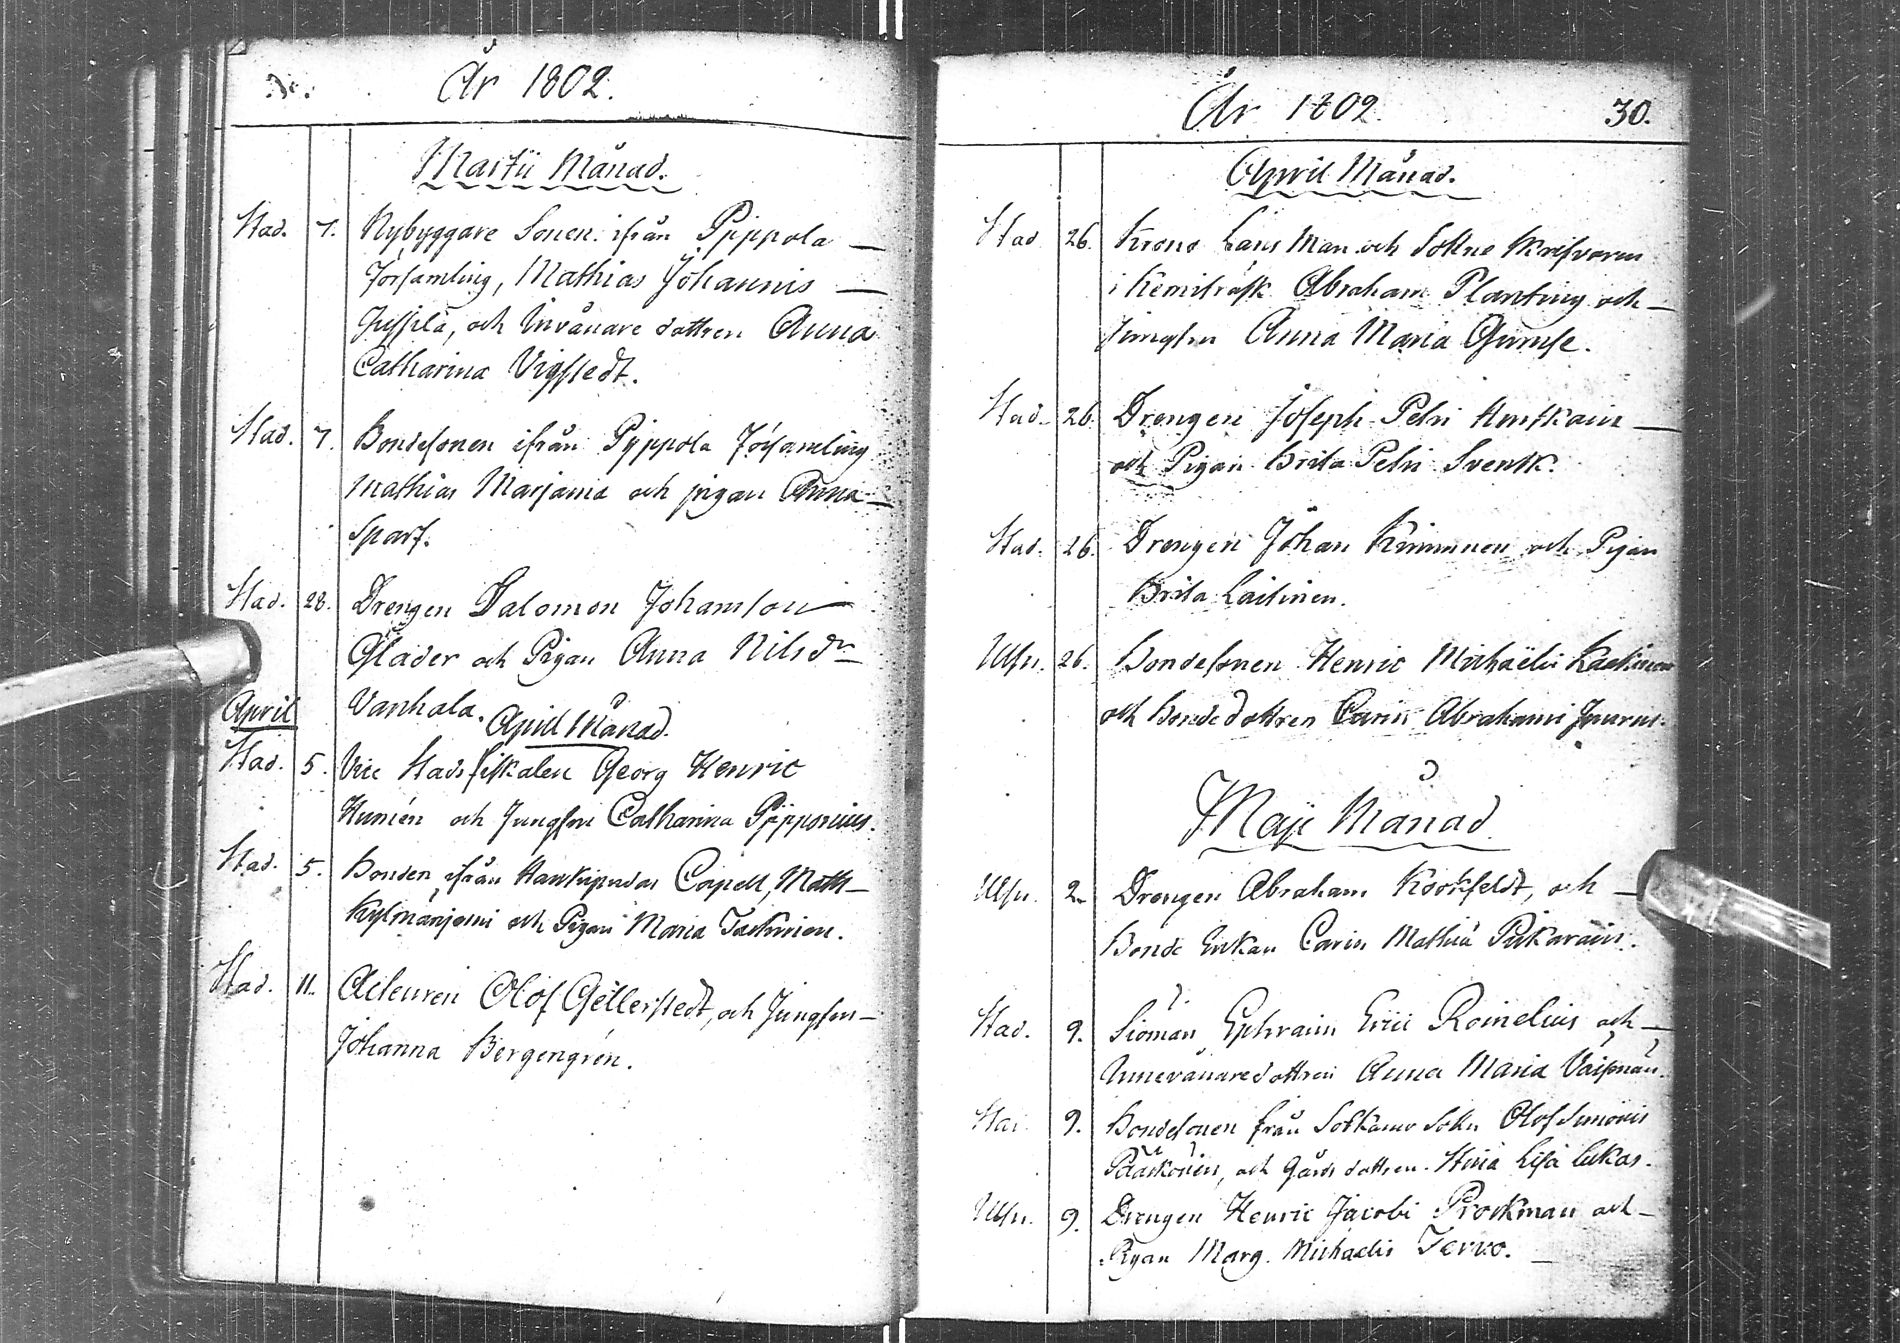 År 1802.
Martii Månad.
Stad. 7. Nybyggare Sonen ifrån Pyppola —
församling, Mathias Johannis —
Jussila, och Invånare dottren Anna
Catharina Vigstedt.
Stad. 7. Bondesonen ifrån Pyppola församling
Mathias Marjama och pigan Anna —
Sparf.
Stad. 28. Drengen Salomon Johansson
Glader och Pigan Anna Nilsdr
Vanhala.
April Månad.
April
Stad. 5. Vice Stadsfiskalen Georg Henric
Humén och Jungfru Catharina Pipponius.
Stad. 5. Bonden ifrån Haukipudas Capell, Math —
Kylmänjemi och Pigan Maria Taskinen.
Stad. 11. Acteuren Olof Gellerstedt, och Jungfru —
Johanna Bergengrén.
År 1802. 30.
April Månad.
Stad 26. Krono Läns Man och Sokne Skrifvaren
i Kemiträsk Abraham Planting och —
Jungfru Anna Maria
Stad. 26. Drengen Joseph Petri —
och Pigan Brita Petri Svensk.
Stad. 26. Drengen Johan Kimmunen och Pigan
Brita Laitinen.
Ulfn. 26. Bondesonen Henric Michaëlis
och Bonde dottren Carin Abrahami
Maji Månad
Ulfn. 2. Drengen Abraham Kockfeldt, och —
Bonde Enkan Carin Mathiæ Pukarain.
Stad. 9. Siöman Ephraim Erici Roinelius och —
Innevånaredottren Anna Maria
Stad. 9. Bondesonen från Sotkamo Sokn Olof Simonis
Pääskönen, och Gårds dottren Stina Lisa Lukas.
Ulfn. 9. Drengen Henric Jacobi Prockman och —
Pigan Marg. Michaelis Tervo. —